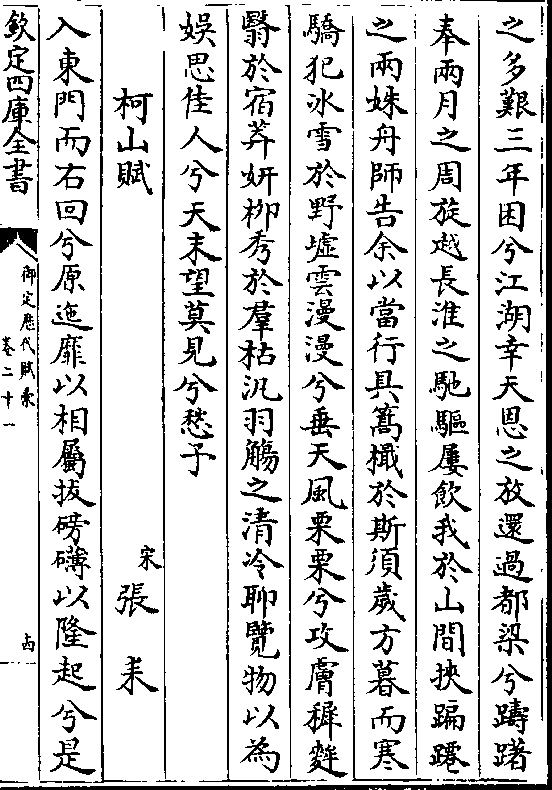 之多艱三年困兮江湖幸天恩之放還過都梁兮躊躇
奉兩月之周旋越長淮之馳驅屢飲我於山間挾蹁躚
之兩姝舟師告余以當行具篙檝於斯須歲方暮而寒
驕犯冰雪於野墟雲漫漫兮垂天風栗栗兮攻膚穉麰
翳於宿莽妍栁秀於羣枯汎羽觴之清冷聊覽物以為
娯思佳人兮天末望莫見兮愁予
柯山賦
宋
張耒
入東門而右回兮原迤靡以相屬拔磅礴以隆起兮是
欽定四庫全書
御定歷代賦彙
卷二十一